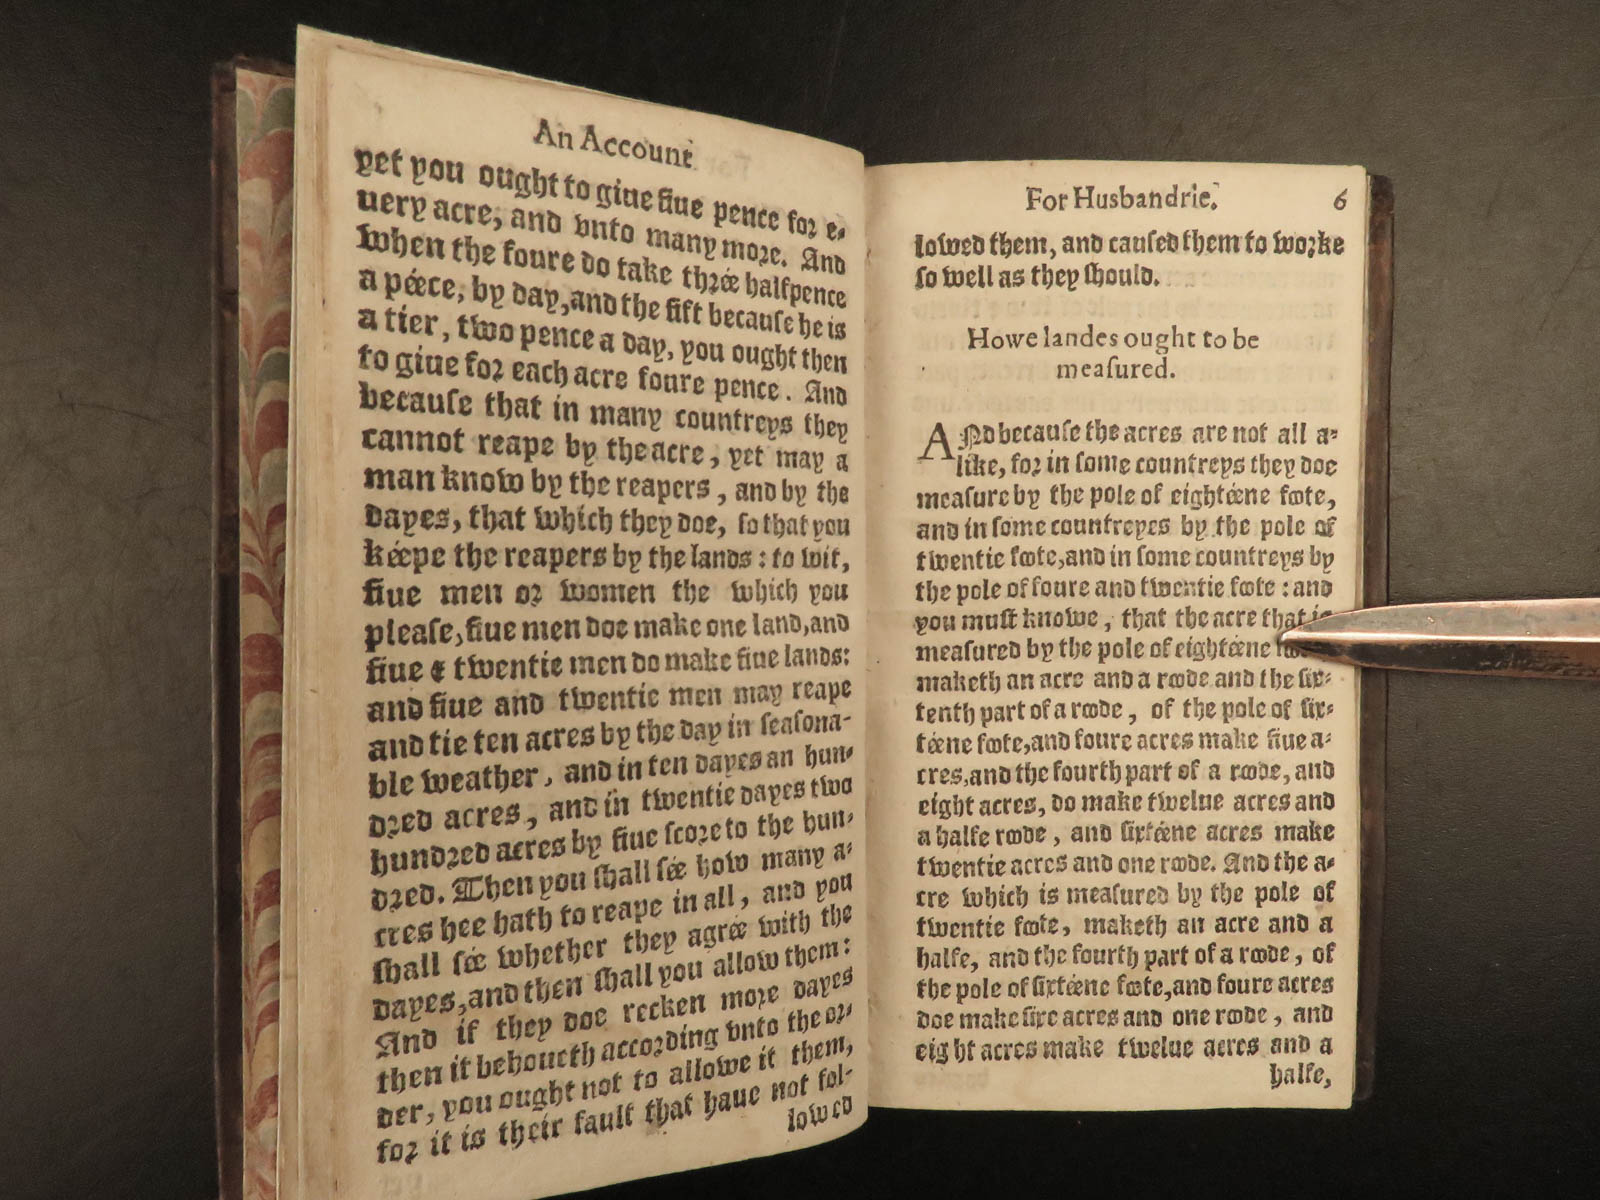 An Account
yet you ought to giue fiue pence for e-
uery acre, and vnto many more. And
when the foure do take thrée halfpence
a péece, by day, and the fift because he is
a tier, two pence a day, you ought then
to giue for each acre foure pence. And
because that in many countreys they
cannot reape by the acre, yet may a
man know by the reapers, and by the
dayes, that which they doe, so that you
kéepe the reapers by the lands: to wit,
fiue men or women the which you
please, fiue men doe make one land, and
fiue & twentie men do make fiue lands:
and fiue and twentie men may reape
and tie ten acres by the day in seasona-
ble weather, and in ten dayes an hun-
dred acres, and in twentie dayes two
hundred acres by fiue score to the hun-
dred. Then you shall sée how many a-
cres hee hath to reape in all, and you
shall sée whether they agrée with the
dayes, and then shall you allow them:
And if they doe recken more dayes
then it behoueth according vnto the or-
der, you ought not to allowe it them,
for it is their fault that haue not fol-
lowed
For Husbandrie. 6
lowed them, and caused them to worke
so well as they should.
Howe landes ought to be
measured.
ANd because the acres are not all a-
like, for in some countreys they doe
measure by the pole of eightéene foote,
and in some countreyes by the pole of
twentie foote, and in some countreys by
the pole of foure and twentie foote: and
you must knowe, that the acre that is
measured by the pole of eightéene
maketh an acre and a roode and the six-
tenth part of a roode, of the pole of six-
téene foote, and foure acres make fiue a-
cres, and the fourth part of a roode, and
eight acres, do make twelue acres and
a halfe roode, and sixtéene acres make
twentie acres and one roode. And the a-
cre which is measured by the pole of
twentie foote, maketh an acre and a
halfe, and the fourth part of a roode, of
the pole of sixtéene foote, and foure acres
doe make sixe acres and one roode, and
eight acres make twelue acres and a
halfe,